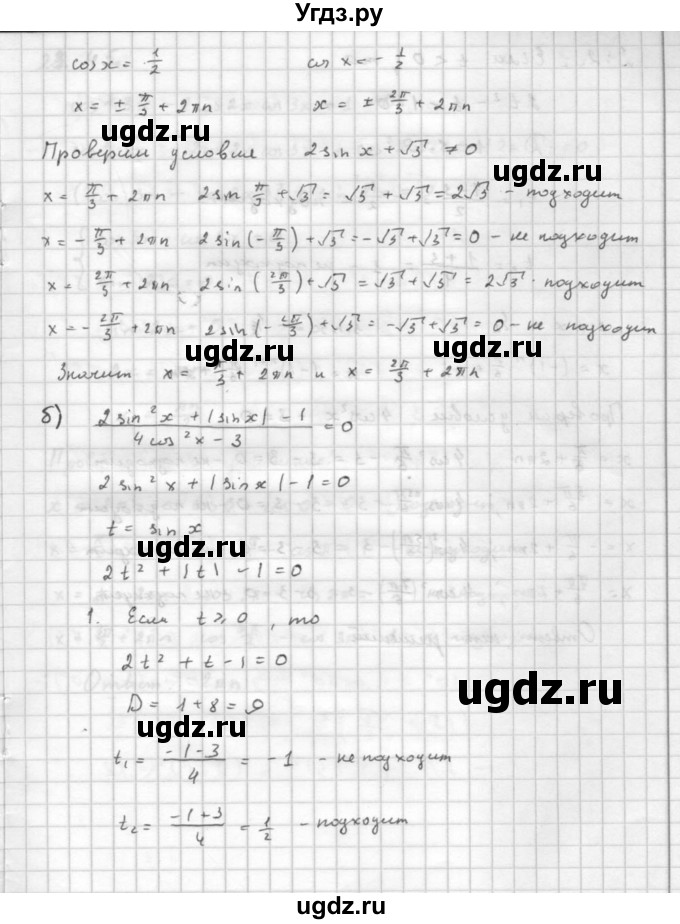 Угдз.ру
cos x = 1/2    cos x = - 1/2
x = ± π/3 + 2πn    x = ± 2π/3 + 2πn
ugdz.ru ugdz.ru
Проверим условия 2 sin x + √3 ≠ 0
x = π/3 + 2πn 2 sin π/3 + √3 = √3 + √3 = 2√3 - подходит
ugdz.ru
x = - π/3 + 2πn 2 sin (- π/3) + √3 = -√3 + √3 = 0 - не подходит
ugdz.ru
x = 2π/3 + 2πn 2 sin (2π/3) + √3 = √3 + √3 = 2√3 - подходит
x = - 2π/3 + 2πn 2 sin (- 2π/3) + √3 = -√3 + √3 = 0 - не подходит
ugdz.ru ugdz.ru
Значит x = π/3 + 2πn и x = 2π/3 + 2πn
б) (2 sin² x + |sin x| - 1)/(4 cos² x - 3) = 0
ugdz.ru
2 sin² x + |sin x| - 1 = 0
t = sin x
ugdz.ru
2t² + |t| - 1 = 0
1. Если t ≥ 0, то
2t² + t - 1 = 0
ugdz.ru
D = 1 + 8 = 9
t₁ = (-1-3)/4 = -1 - не подходит
t₂ = (-1+3)/4 = 1/2 - подходит
ugdz.ru ugdz.ru